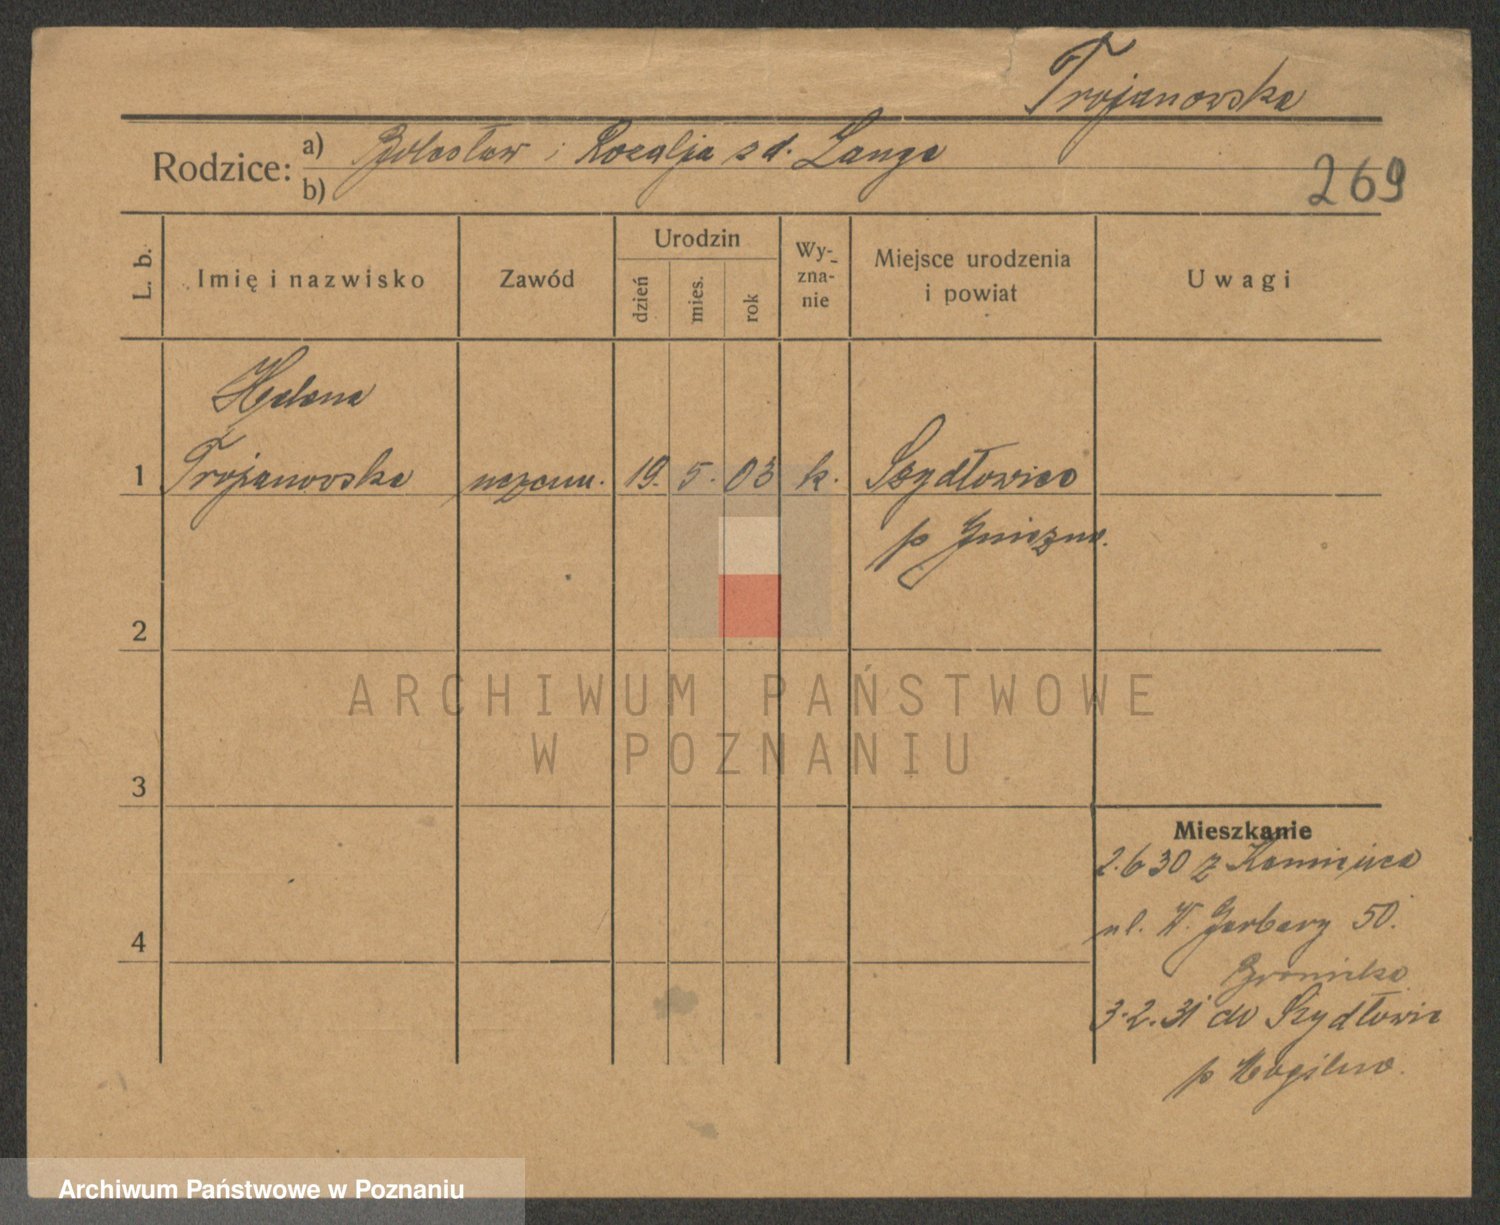 Trojanowska
Rodzice: a) Bolesław i Rozalja z d. Lange
b)
269
L. b.
Imię i nazwisko
Zawód
Urodzin
dzień
mies.
rok
Wy-
zna-
nie
Miejsce urodzenia
i powiat
Uwagi
Helena
1 Trojanowska uczenn. 19. 5. 03 k. Szydłowiec
p Gniezno.
2
3
4
Mieszkanie
2.6 30 z Kamieńca
ul. W. Garbary 50.
3.2.31 do Szydłowic
p Mogilno.
ARCHIWUM PAŃSTWOWE
W POZNANIU
Archiwum Państwowe w Poznaniu